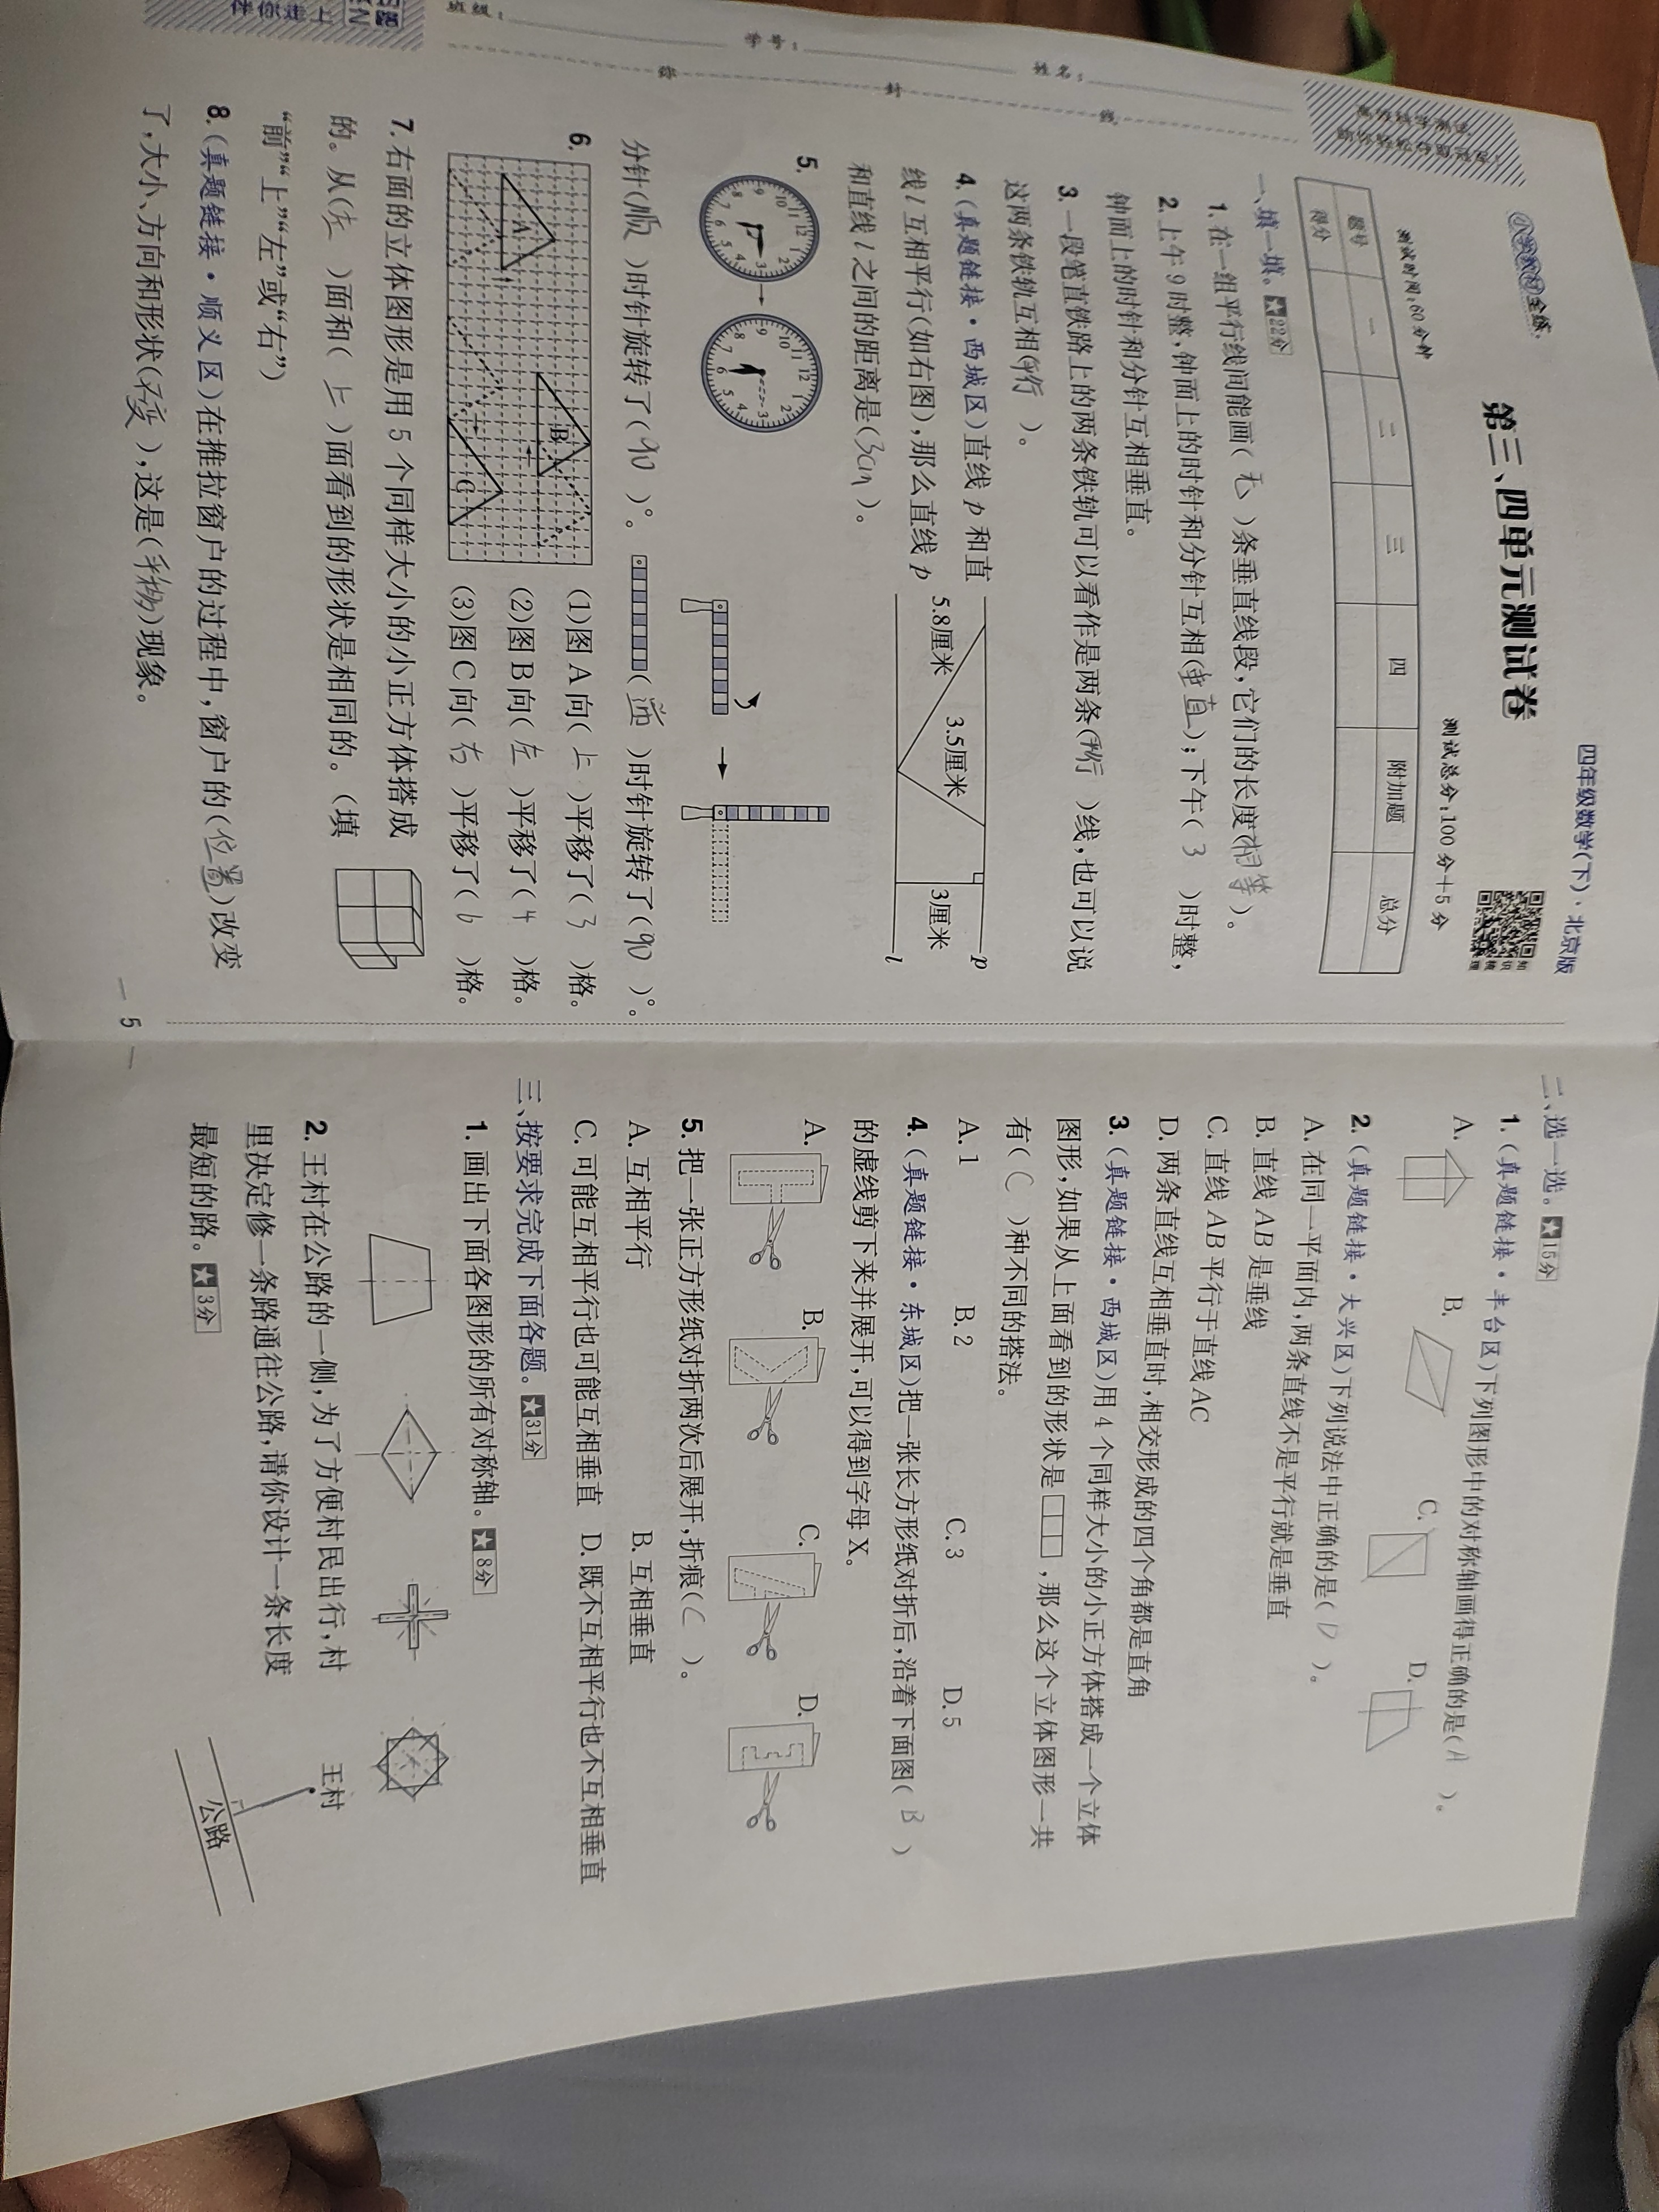 四年级数学(下)·北京版
小学教材全练
第三、四单元测试卷
测试时间:60分钟 测试总分:100分+5分
题号 一 二 三 四 附加题 总分
得分
班级:
学号:
姓名:
弥 封 线
一、填一填。★22分
1. 在一组平行线间能画(无)条垂直线段,它们的长度(相等)。
2. 上午9时整,钟面上的时针和分针互相(垂直);下午(3)时整,
钟面上的时针和分针互相垂直。
3. 一段笔直铁路上的两条铁轨可以看作是两条(平行)线,也可以说
这两条铁轨互相(平行)。
4. (真题链接·西城区)直线p和直
线l互相平行(如右图),那么直线p
和直线l之间的距离是(3cm)。
5.8厘米 3.5厘米 3厘米 p l
5.
分针(顺)时针旋转了(90)°。 (逆)时针旋转了(90)°。
6.
A B C
(1)图A向(上)平移了(3)格。
(2)图B向(左)平移了(4)格。
(3)图C向(右)平移了(6)格。
7. 右面的立体图形是用5个同样大小的小正方体搭成
的。从(左)面和(上)面看到的形状是相同的。(填
“前”“上”“左”或“右”)
8. (真题链接·顺义区)在推拉窗户的过程中,窗户的(位置)改变
了,大小、方向和形状(不变),这是(平移)现象。
— 5 —
二、选一选。★15分
1. (真题链接·丰台区)下列图形中的对称轴画得正确的是(A)。
A. B. C. D.
2. (真题链接·大兴区)下列说法中正确的是(D)。
A. 在同一平面内,两条直线不是平行就是垂直
B. 直线AB是垂线
C. 直线AB平行于直线AC
D. 两条直线互相垂直时,相交形成的四个角都是直角
3. (真题链接·西城区)用4个同样大小的小正方体搭成一个立体
图形,如果从上面看到的形状是□□□,那么这个立体图形一共
有(C)种不同的搭法。
A. 1 B. 2 C. 3 D. 5
4. (真题链接·东城区)把一张长方形纸对折后,沿着下面图(B)
的虚线剪下来并展开,可以得到字母X。
A. B. C. D.
5. 把一张正方形纸对折两次后展开,折痕(C)。
A. 互相平行 B. 互相垂直
C. 可能互相平行也可能互相垂直 D. 既不互相平行也不互相垂直
三、按要求完成下面各题。★31分
1. 画出下面各图形的所有对称轴。★8分
2. 王村在公路的一侧,为了方便村民出行,村
里决定修一条路通往公路,请你设计一条长度
最短的路。★3分
王村
公路